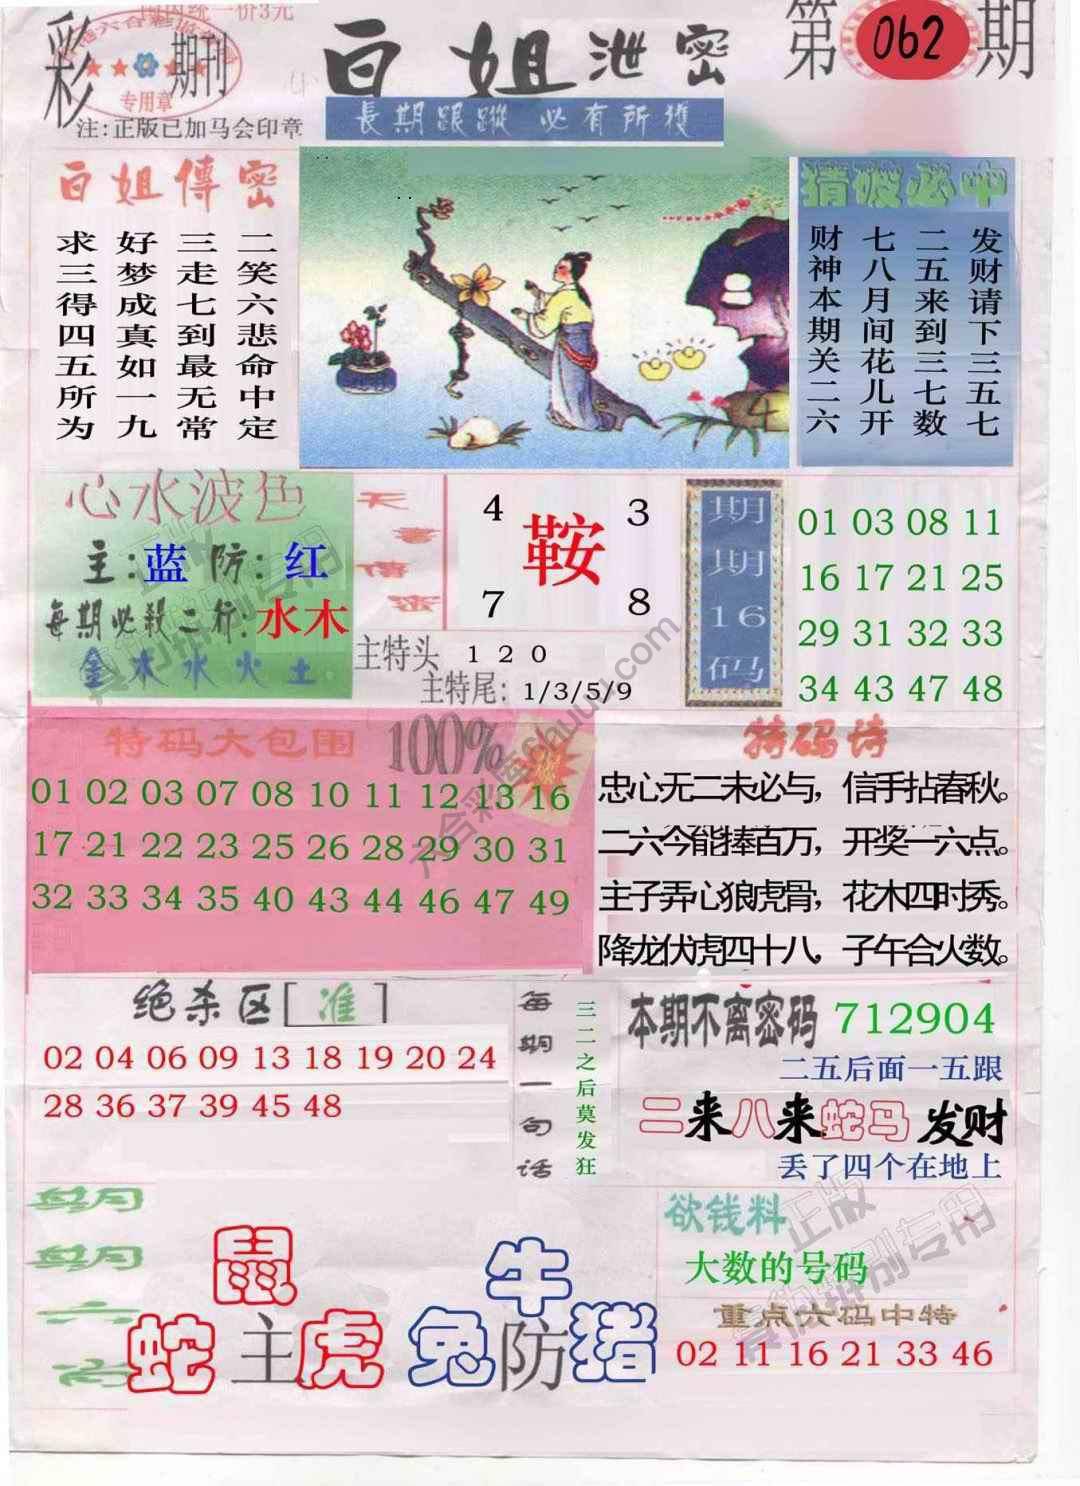 国内统一价3元
彩 期刊
专用章
注:正版已加马会印章
白姐泄密
第062期
長期跟蹤 必有所獲
白姐傳密
二笑六悲命中定
三走七到最无常
好梦成真如一九
求三得四五所为
猜破必中
发财请下三五七
二五来到三七数
七八月间花儿开
财神本期关二六
心水波色
主:蓝 防:红
每期必殺二行:水木
金木水火土
天書傳密
4 3
鞍
7 8
主特头 1 2 0
主特尾: 1/3/5/9
期期16码
01 03 08 11
16 17 21 25
29 31 32 33
34 43 47 48
特码大包围 100%
01 02 03 07 08 10 11 12 13 16
17 21 22 23 25 26 28 29 30 31
32 33 34 35 40 43 44 46 47 49
特码诗
忠心无二未必与，信手拈春秋。
二六今能捧百万，开奖一六点。
主子弄心狼虎骨，花木四时秀。
降龙伏虎四十八，子午合火数。
绝杀区[准]
02 04 06 09 13 18 19 20 24
28 36 37 39 45 48
每期一句话
三二之后莫发狂
本期不离密码 712904
二五后面一五跟
二来八来蛇马发财
丢了四个在地上
鼠
蛇主虎
牛
兔防猪
欲钱料
大数的号码
重点六码中特
02 11 16 21 33 46